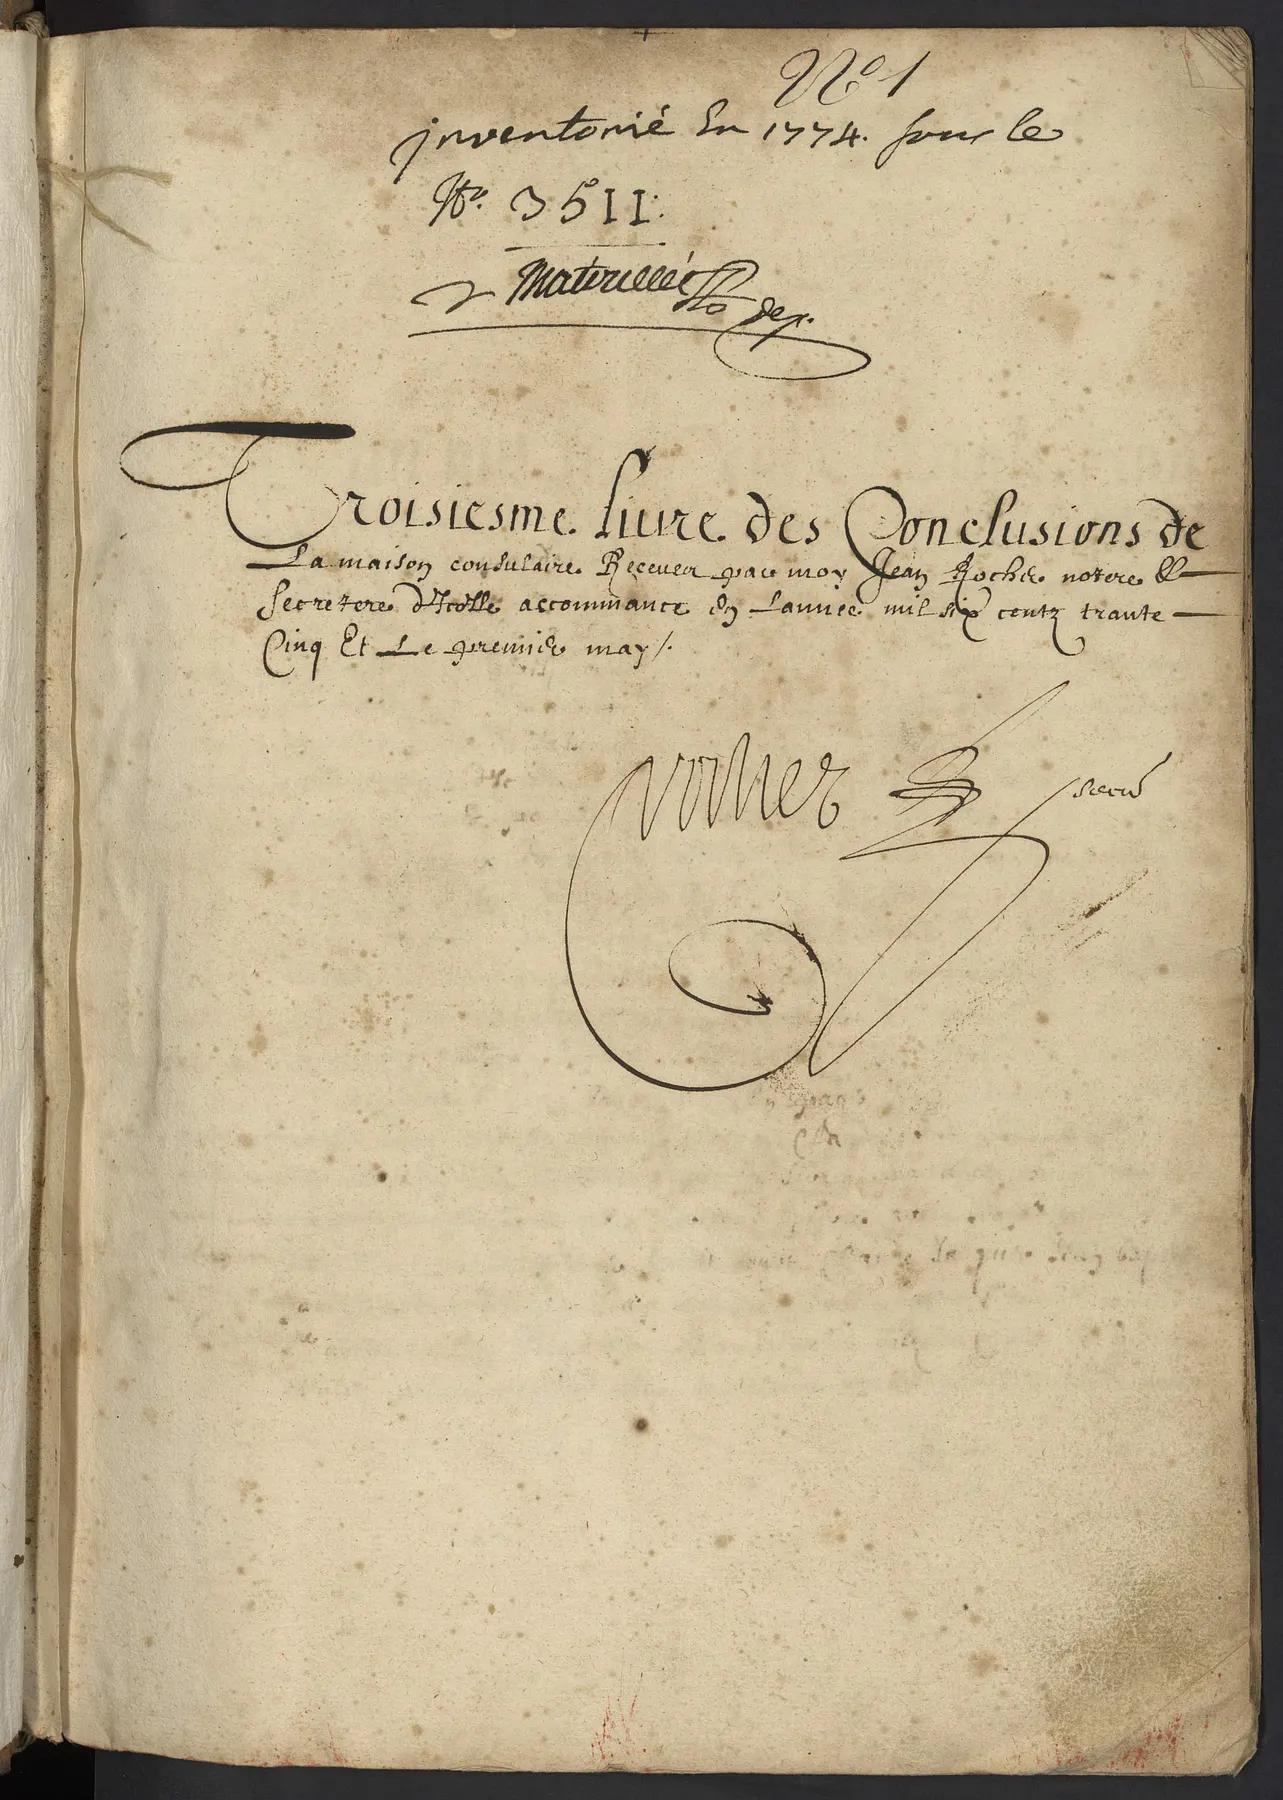 N° 1
inventorié En 1774. sous le
N°. 3511.
Troisiesme liure des Conclusions de
La maison consulaire Receues par moy Jean Rocher notere &
Secretere d'Icelle accommance En Lannee mil six centz trante
Cinq Et Le premier may /.
rocher secre